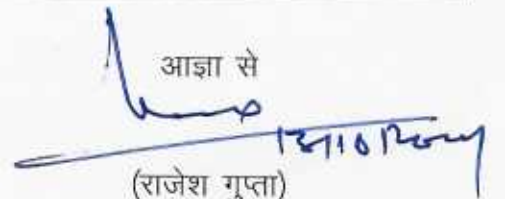 आज्ञा से
(राजेश गुप्ता)